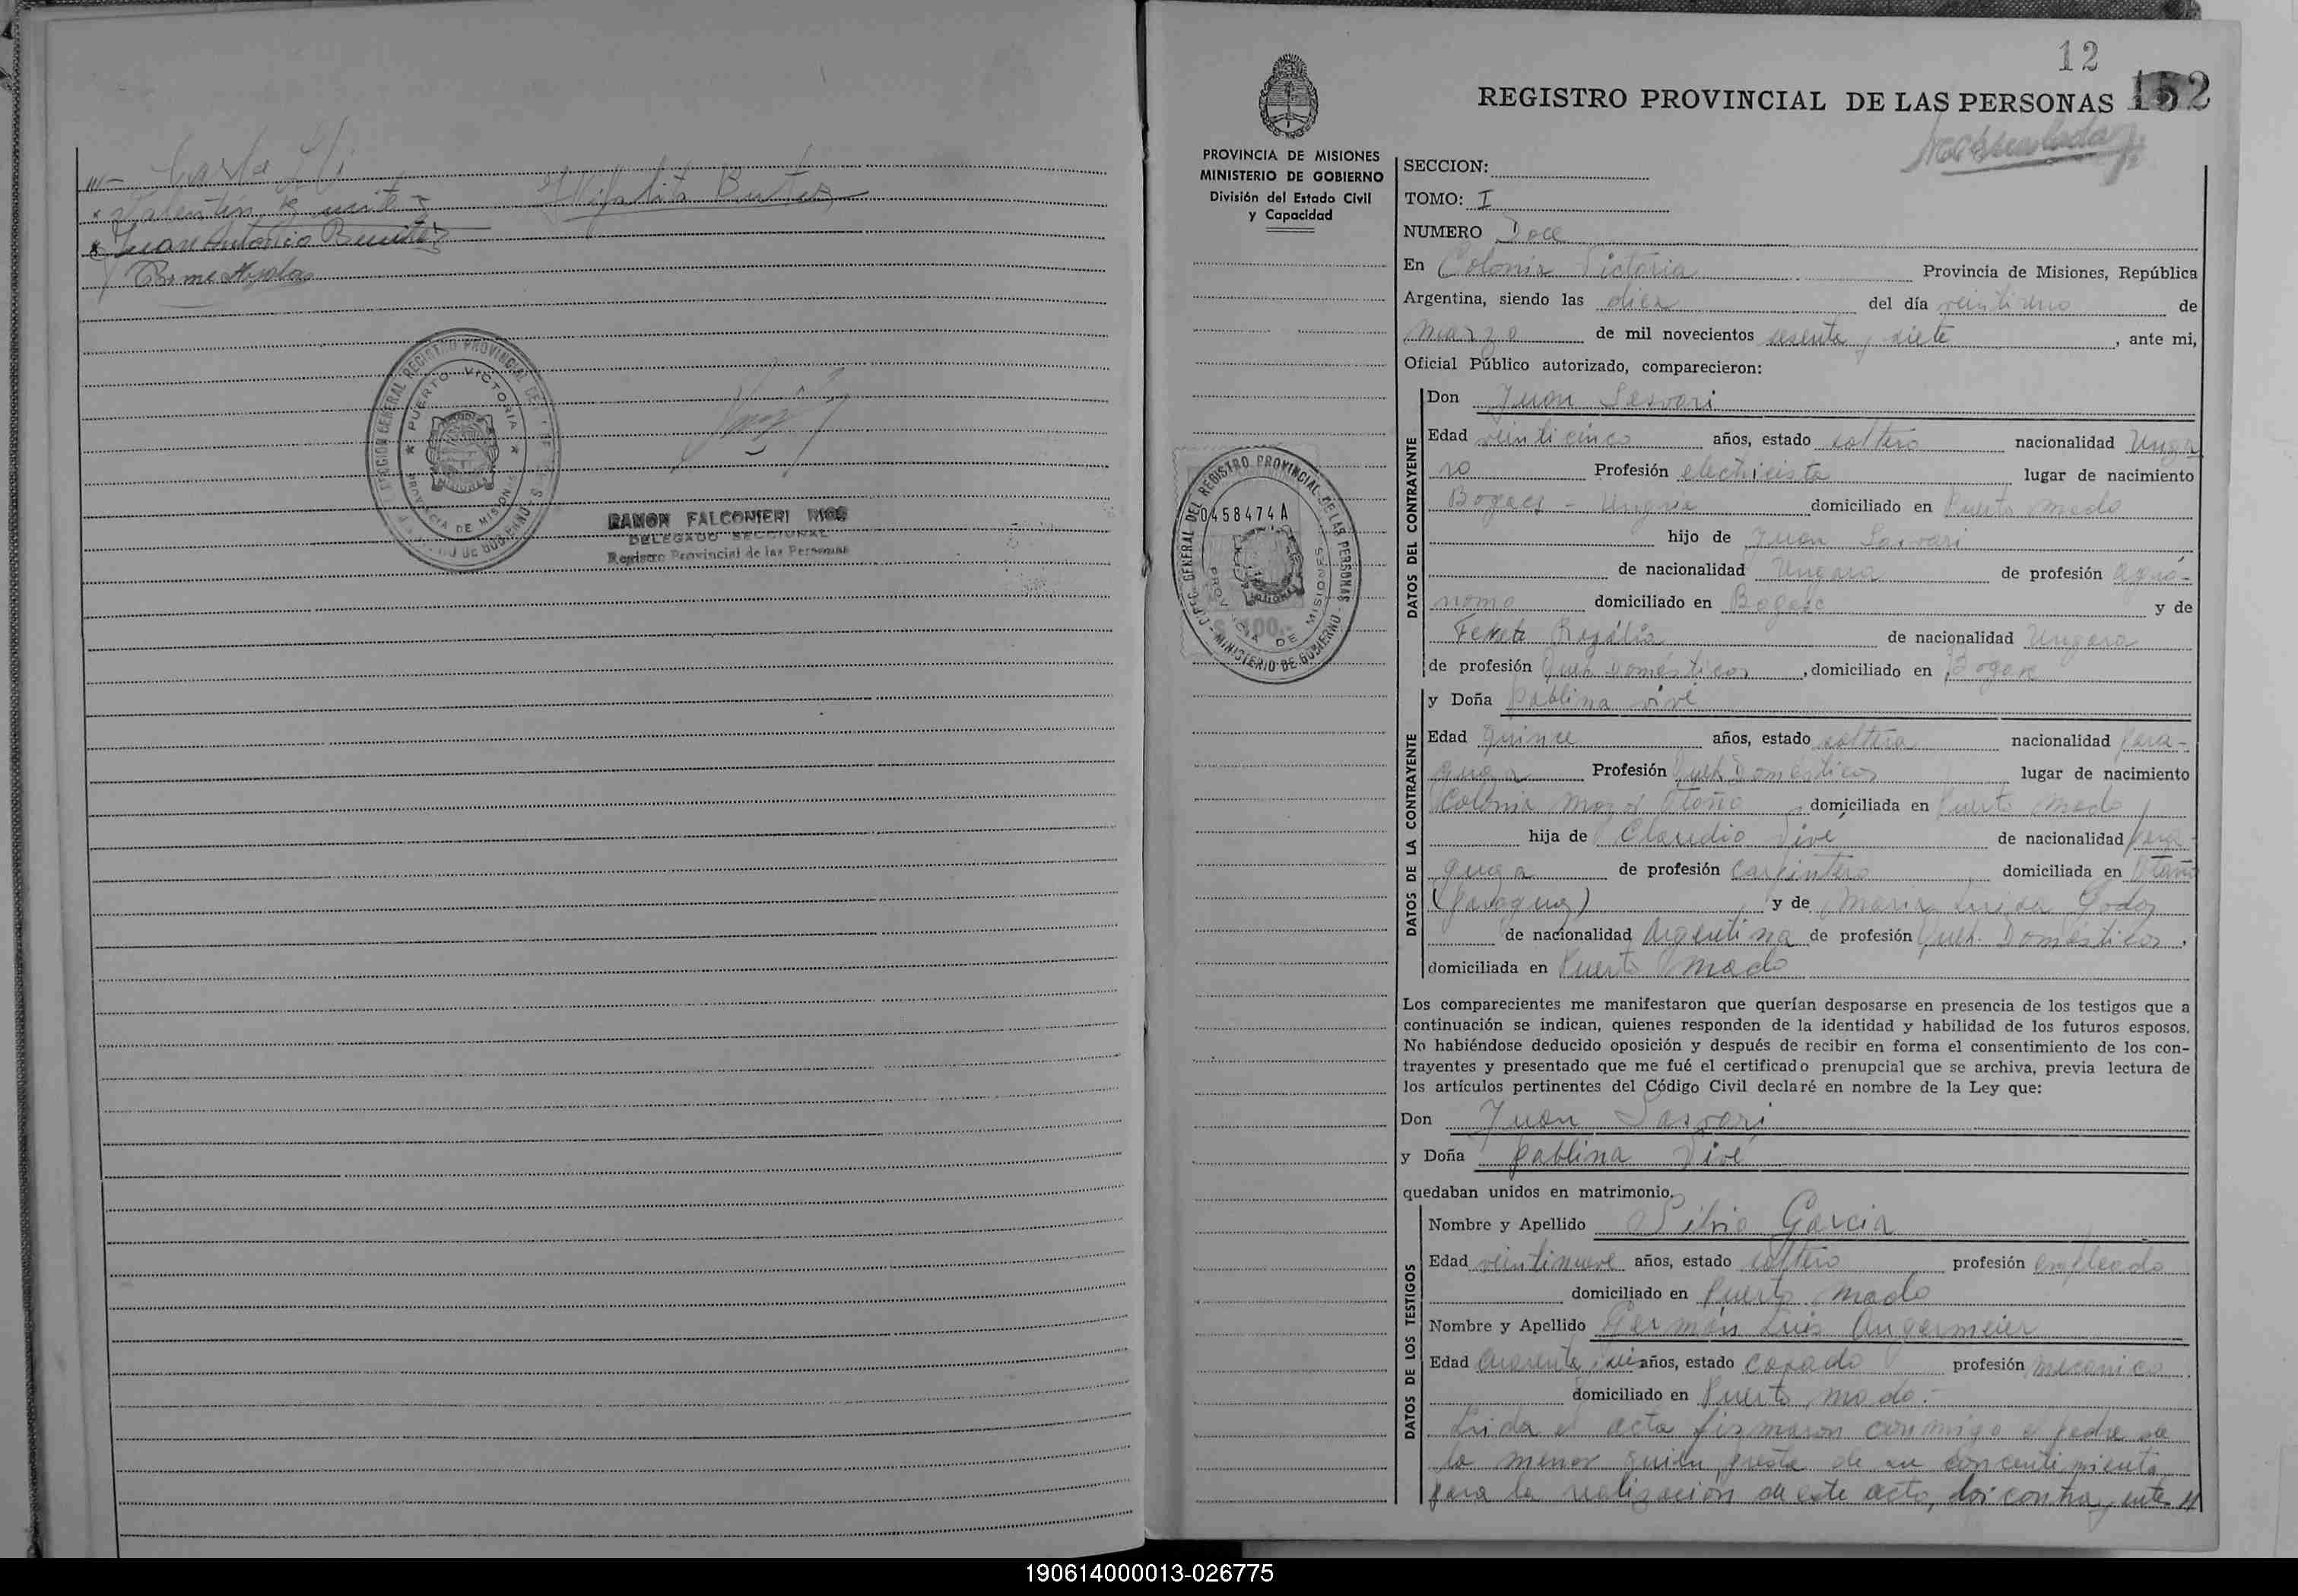 Carlos
Valentín Benitez Hipolito Benitez
Juan Antonio Benitez
Cosme Ayala
DIRECCION GENERAL DEL REGISTRO PROVINCIAL DE LAS PERSONAS - MINISTERIO DE GOBIERNO
PUERTO VICTORIA
PROVINCIA DE MISIONES
RAMON FALCONIERI RIOS
DELEGADO SECCIONAL
Registro Provincial de las Personas
12
REGISTRO PROVINCIAL DE LAS PERSONAS 152
PROVINCIA DE MISIONES
MINISTERIO DE GOBIERNO
División del Estado Civil
y Capacidad
SECCION:
TOMO: I
NUMERO Doce
En Colonia Victoria Provincia de Misiones, República
Argentina, siendo las diez del día veintiuno de
marzo de mil novecientos sesenta y siete, ante mi,
Oficial Público autorizado, comparecieron:
DATOS DEL CONTRAYENTE
Don Juan Sasvari
Edad veinticinco años, estado soltero nacionalidad Unga
ro Profesión electricista lugar de nacimiento
Bogacs - Ungria domiciliado en Puerto Mado
hijo de Juan Sasvari
de nacionalidad Ungara de profesión agró-
nomo domiciliado en Bogacs y de
Fekete Rozália de nacionalidad Ungara
de profesión Queh. Domésticos, domiciliado en Bogacs
DIREC. GENERAL DEL REGISTRO PROVINCIAL DE LAS PERSONAS - MINISTERIO DE GOBIERNO
0458474A
PROVINCIA DE MISIONES
$ 100.-
DATOS DE LA CONTRAYENTE
y Doña Pablina Vivé
Edad quince años, estado soltera nacionalidad Para-
guaya Profesión Queh. Domésticos lugar de nacimiento
Colonia Mayor Otaño domiciliada en Puerto Mado
hija de Claudio Vivé de nacionalidad Para-
guaya de profesión Carpintero domiciliada en Otaño
(Paraguay) y de Maria Luisa Godoy
de nacionalidad Argentina de profesión Queh. Domésticos,
domiciliada en Puerto Mado
Los comparecientes me manifestaron que querían desposarse en presencia de los testigos que a
continuación se indican, quienes responden de la identidad y habilidad de los futuros esposos.
No habiéndose deducido oposición y después de recibir en forma el consentimiento de los con-
trayentes y presentado que me fué el certificado prenupcial que se archiva, previa lectura de
los artículos pertinentes del Código Civil declaré en nombre de la Ley que:
Don Juan Sasvari
y Doña Pablina Vivé
quedaban unidos en matrimonio.
DATOS DE LOS TESTIGOS
Nombre y Apellido Silvio Garcia
Edad veintinueve años, estado soltero profesión empleado
domiciliado en Puerto Mado
Nombre y Apellido Germán Luis Angermeier
Edad Cuarenta y años, estado casado profesión mecanico
domiciliado en Puerto Mado.-
Leida el acta firmaron conmigo el padre de
la menor quien presta de su concentimiento
para la realización de este acto, los contrayentes y
190614000013-026775